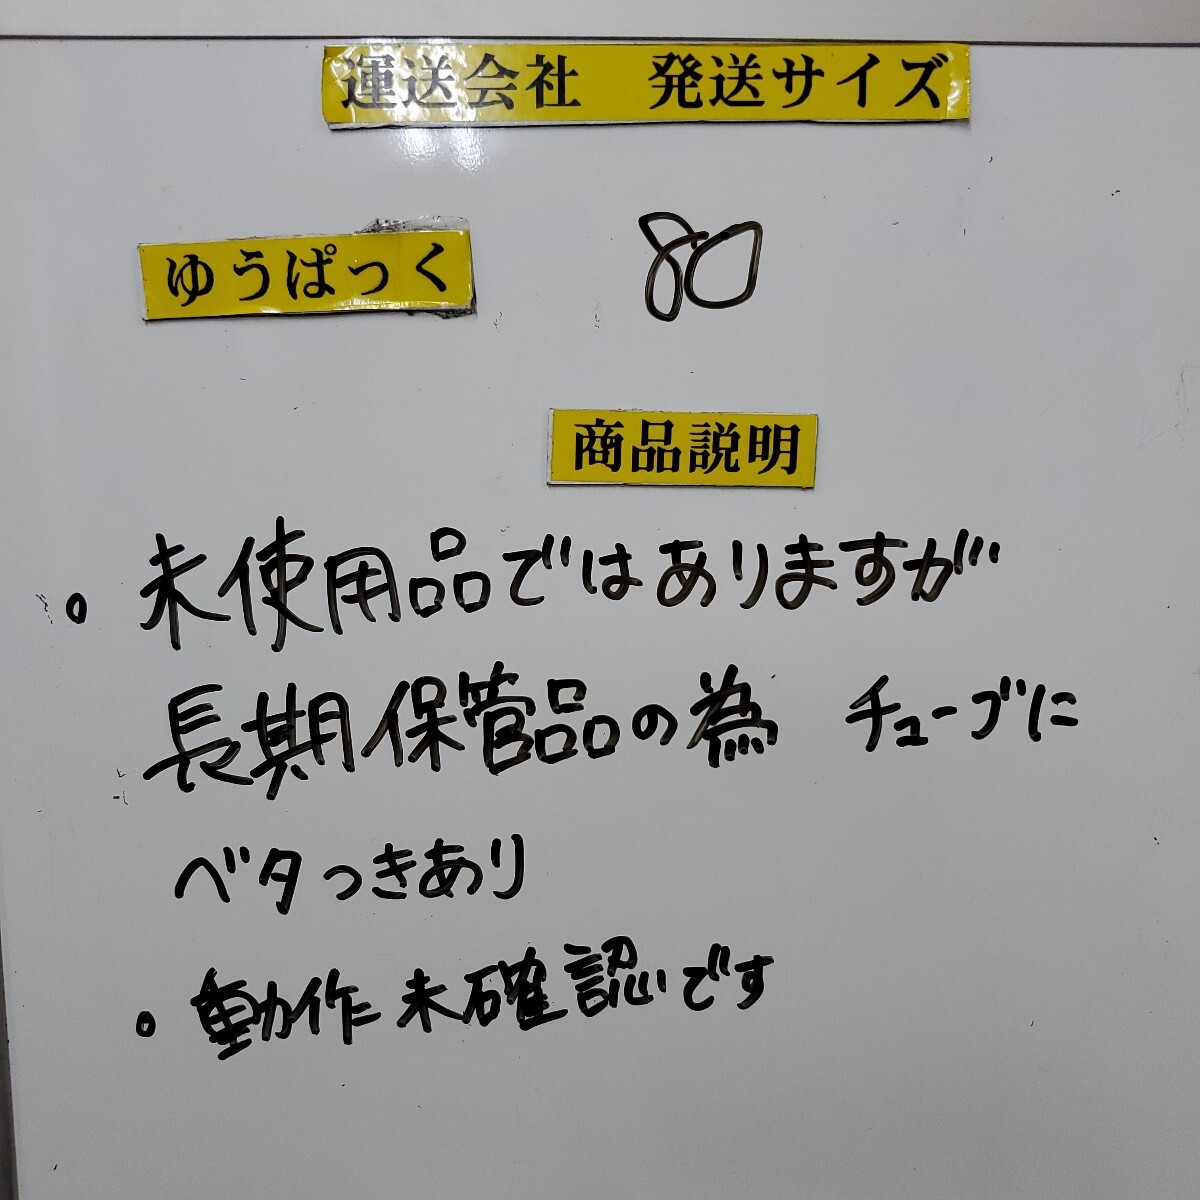 運送会社　発送サイズ
ゆうぱっく　80
商品説明
。未使用品ではありますが
長期保管品の為　チューブに
ベタつきあり
。動作未確認です